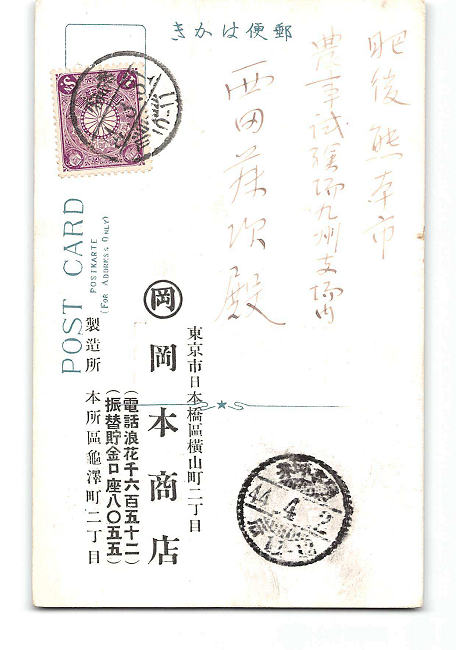 郵便はかき
肥後熊本市
農事試験場九州支場内
西田藤次殿
POST CARD
POSTKARTE
(FOR ADDRESS ONLY)
東京市日本橋區橫山町二丁目
岡 岡本商店
(電話浪花千六百五十二)
(振替貯金口座八〇五五)
製造所 本所區龜澤町二丁目
44.4.2